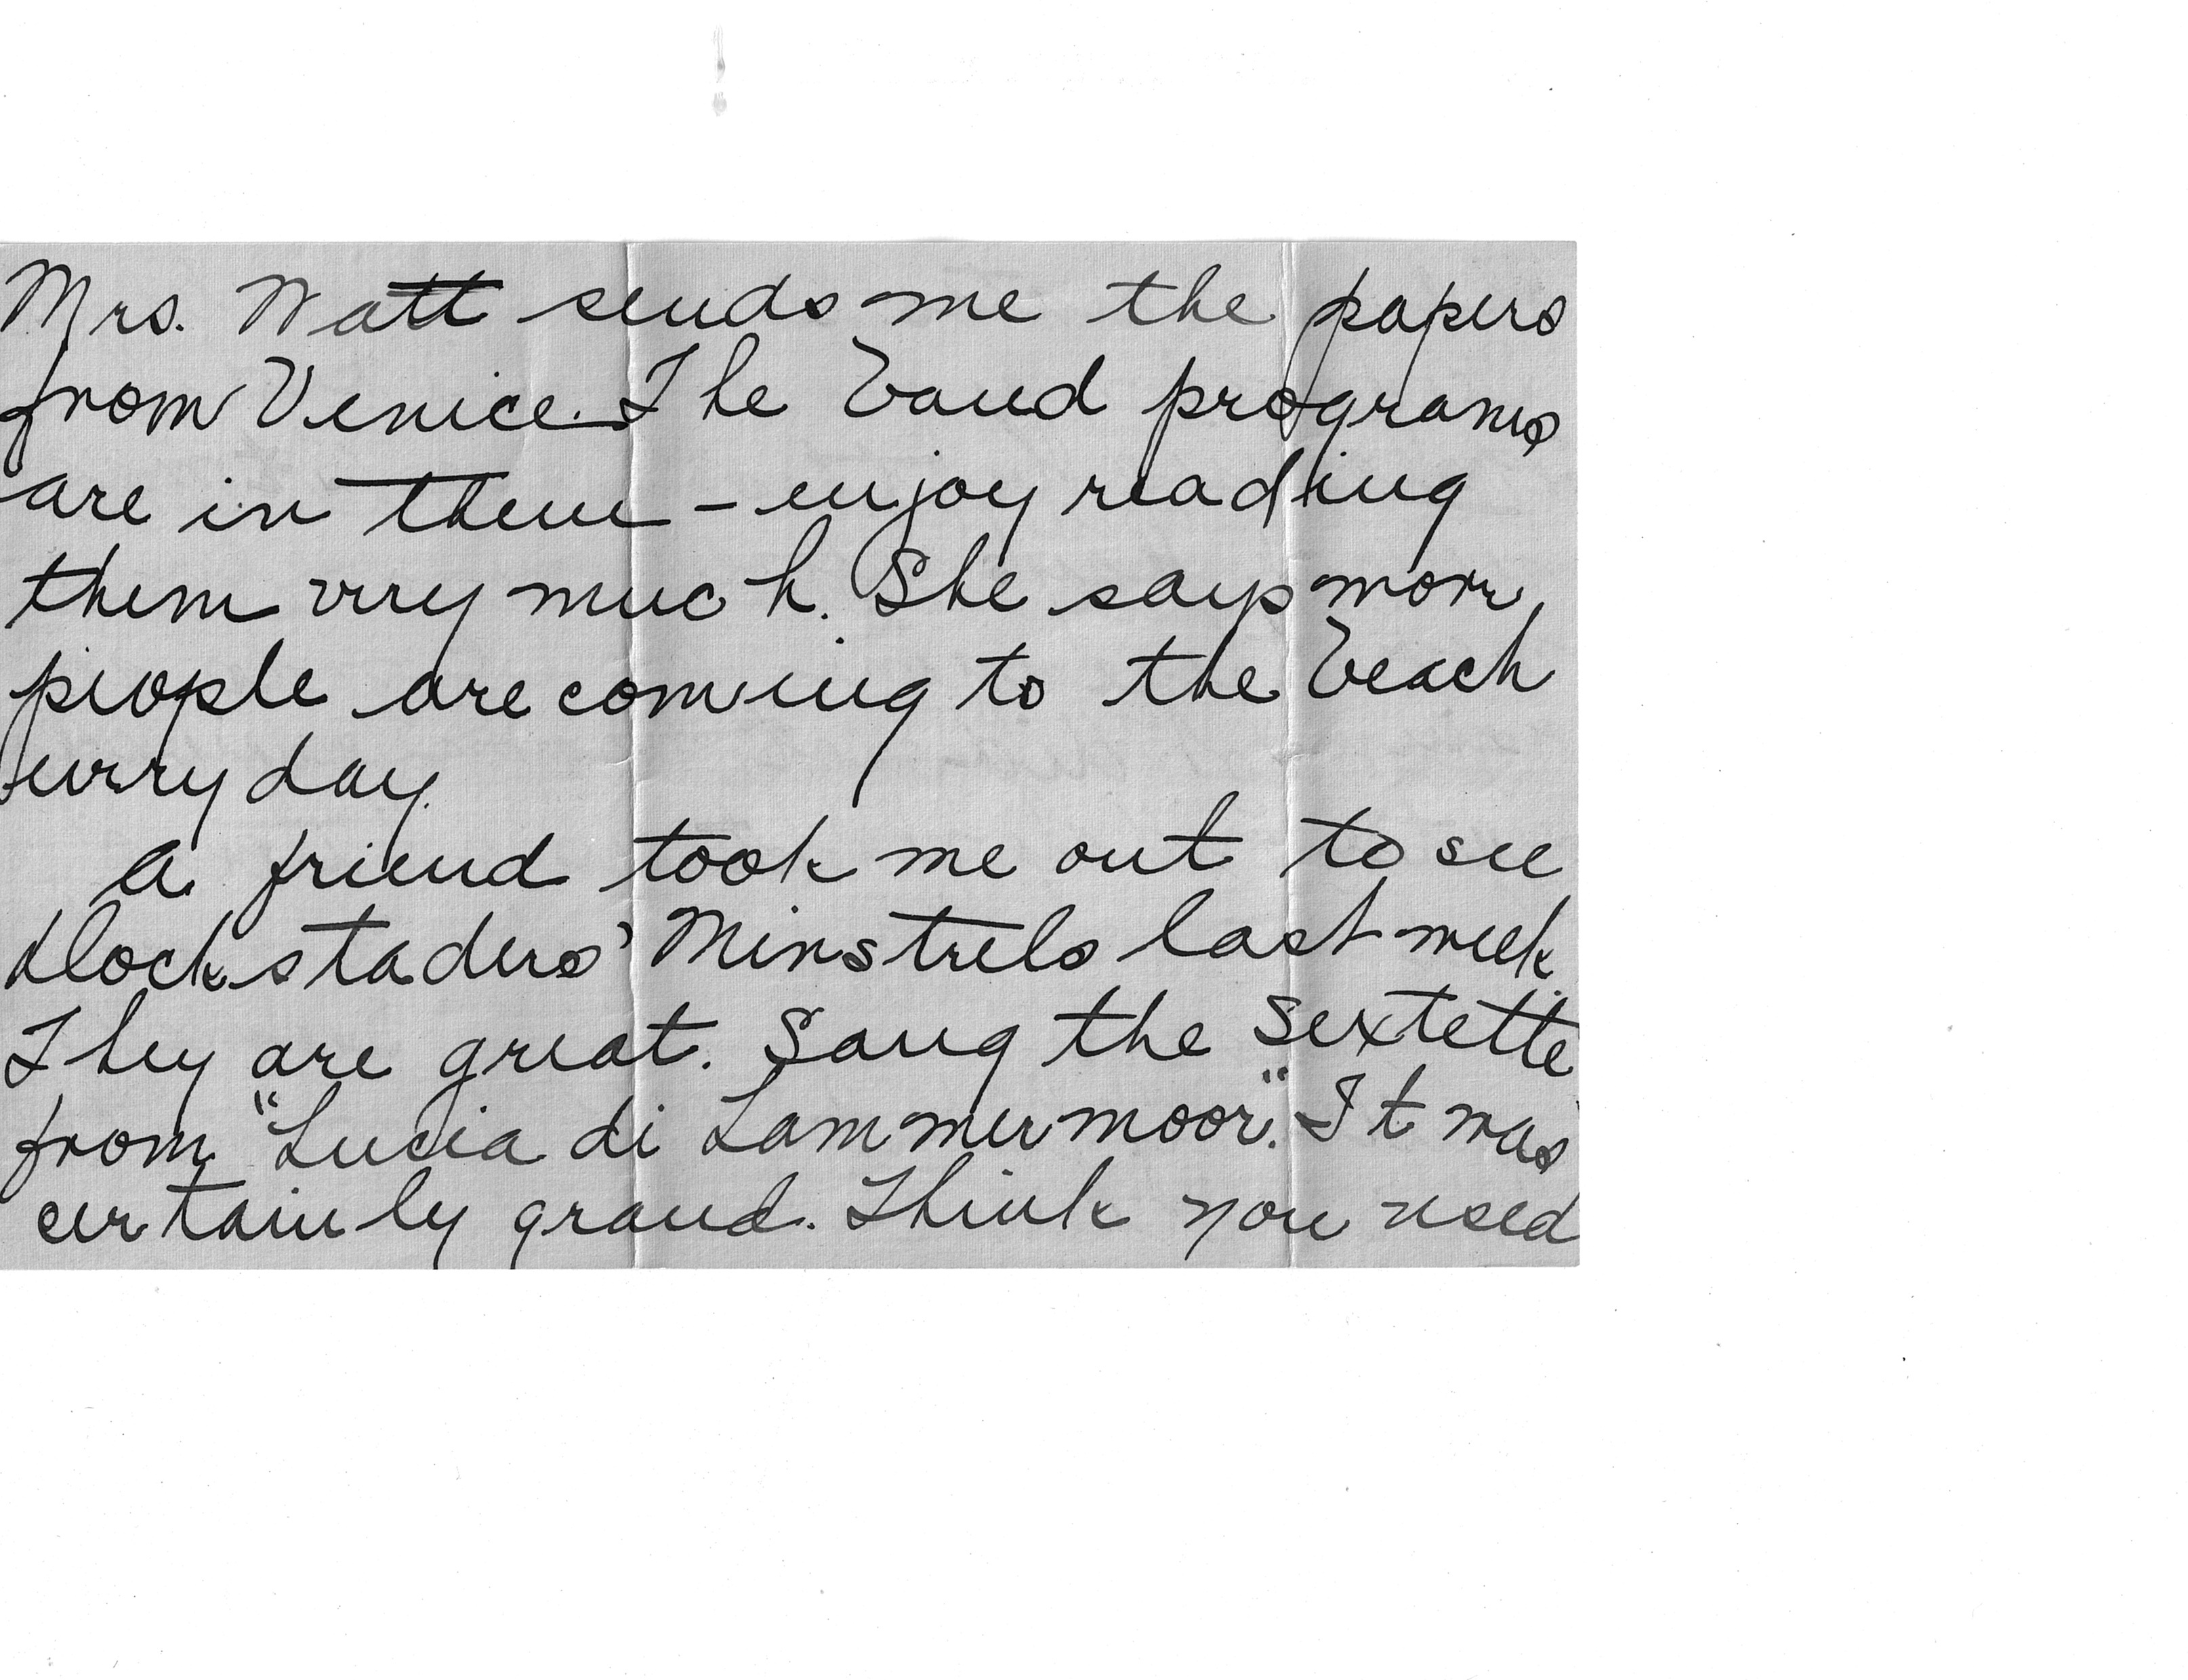 Mrs. Watt sends me the papers
from Venice. The band programs
are in them - enjoy reading
them very much. She says more
people are coming to the beach
every day.
A friend took me out to see
Dockstaders' Minstrels last week.
They are great. Sang the Sextette
from "Lucia di Lammermoor." It was
certainly grand. Think you used